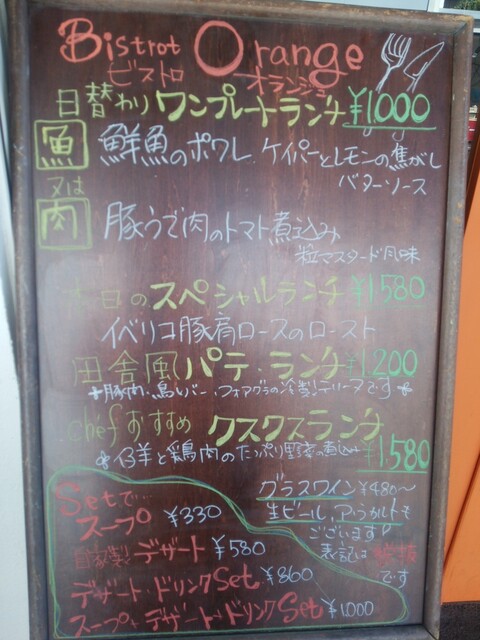 Bistrot Orange
ビストロ オランジュ
日替わり ワンプレートランチ ¥1,000
魚 鮮魚のポワレ、ケイパーとレモンの焦がし
バターソース
又は
肉 豚うで肉のトマト煮込み
粒マスタード風味
本日のスペシャルランチ ¥1580
イベリコ豚肩ロースのロースト
田舎風パテ・ランチ ¥1,200
豚肉・鳥レバー、フォアグラの冷製テリーヌです
chefおすすめ クスクスランチ
仔羊と鶏肉のたっぷり野菜の煮込み ¥1,580
Setで…
スープ ¥330
自家製 デザート ¥580
デザート・ドリンクSet ¥860
スープ+デザート+ドリンクSet ¥1,000
グラスワイン ¥480〜
生ビール、アラカルトも
ございます!
表記は税抜
です